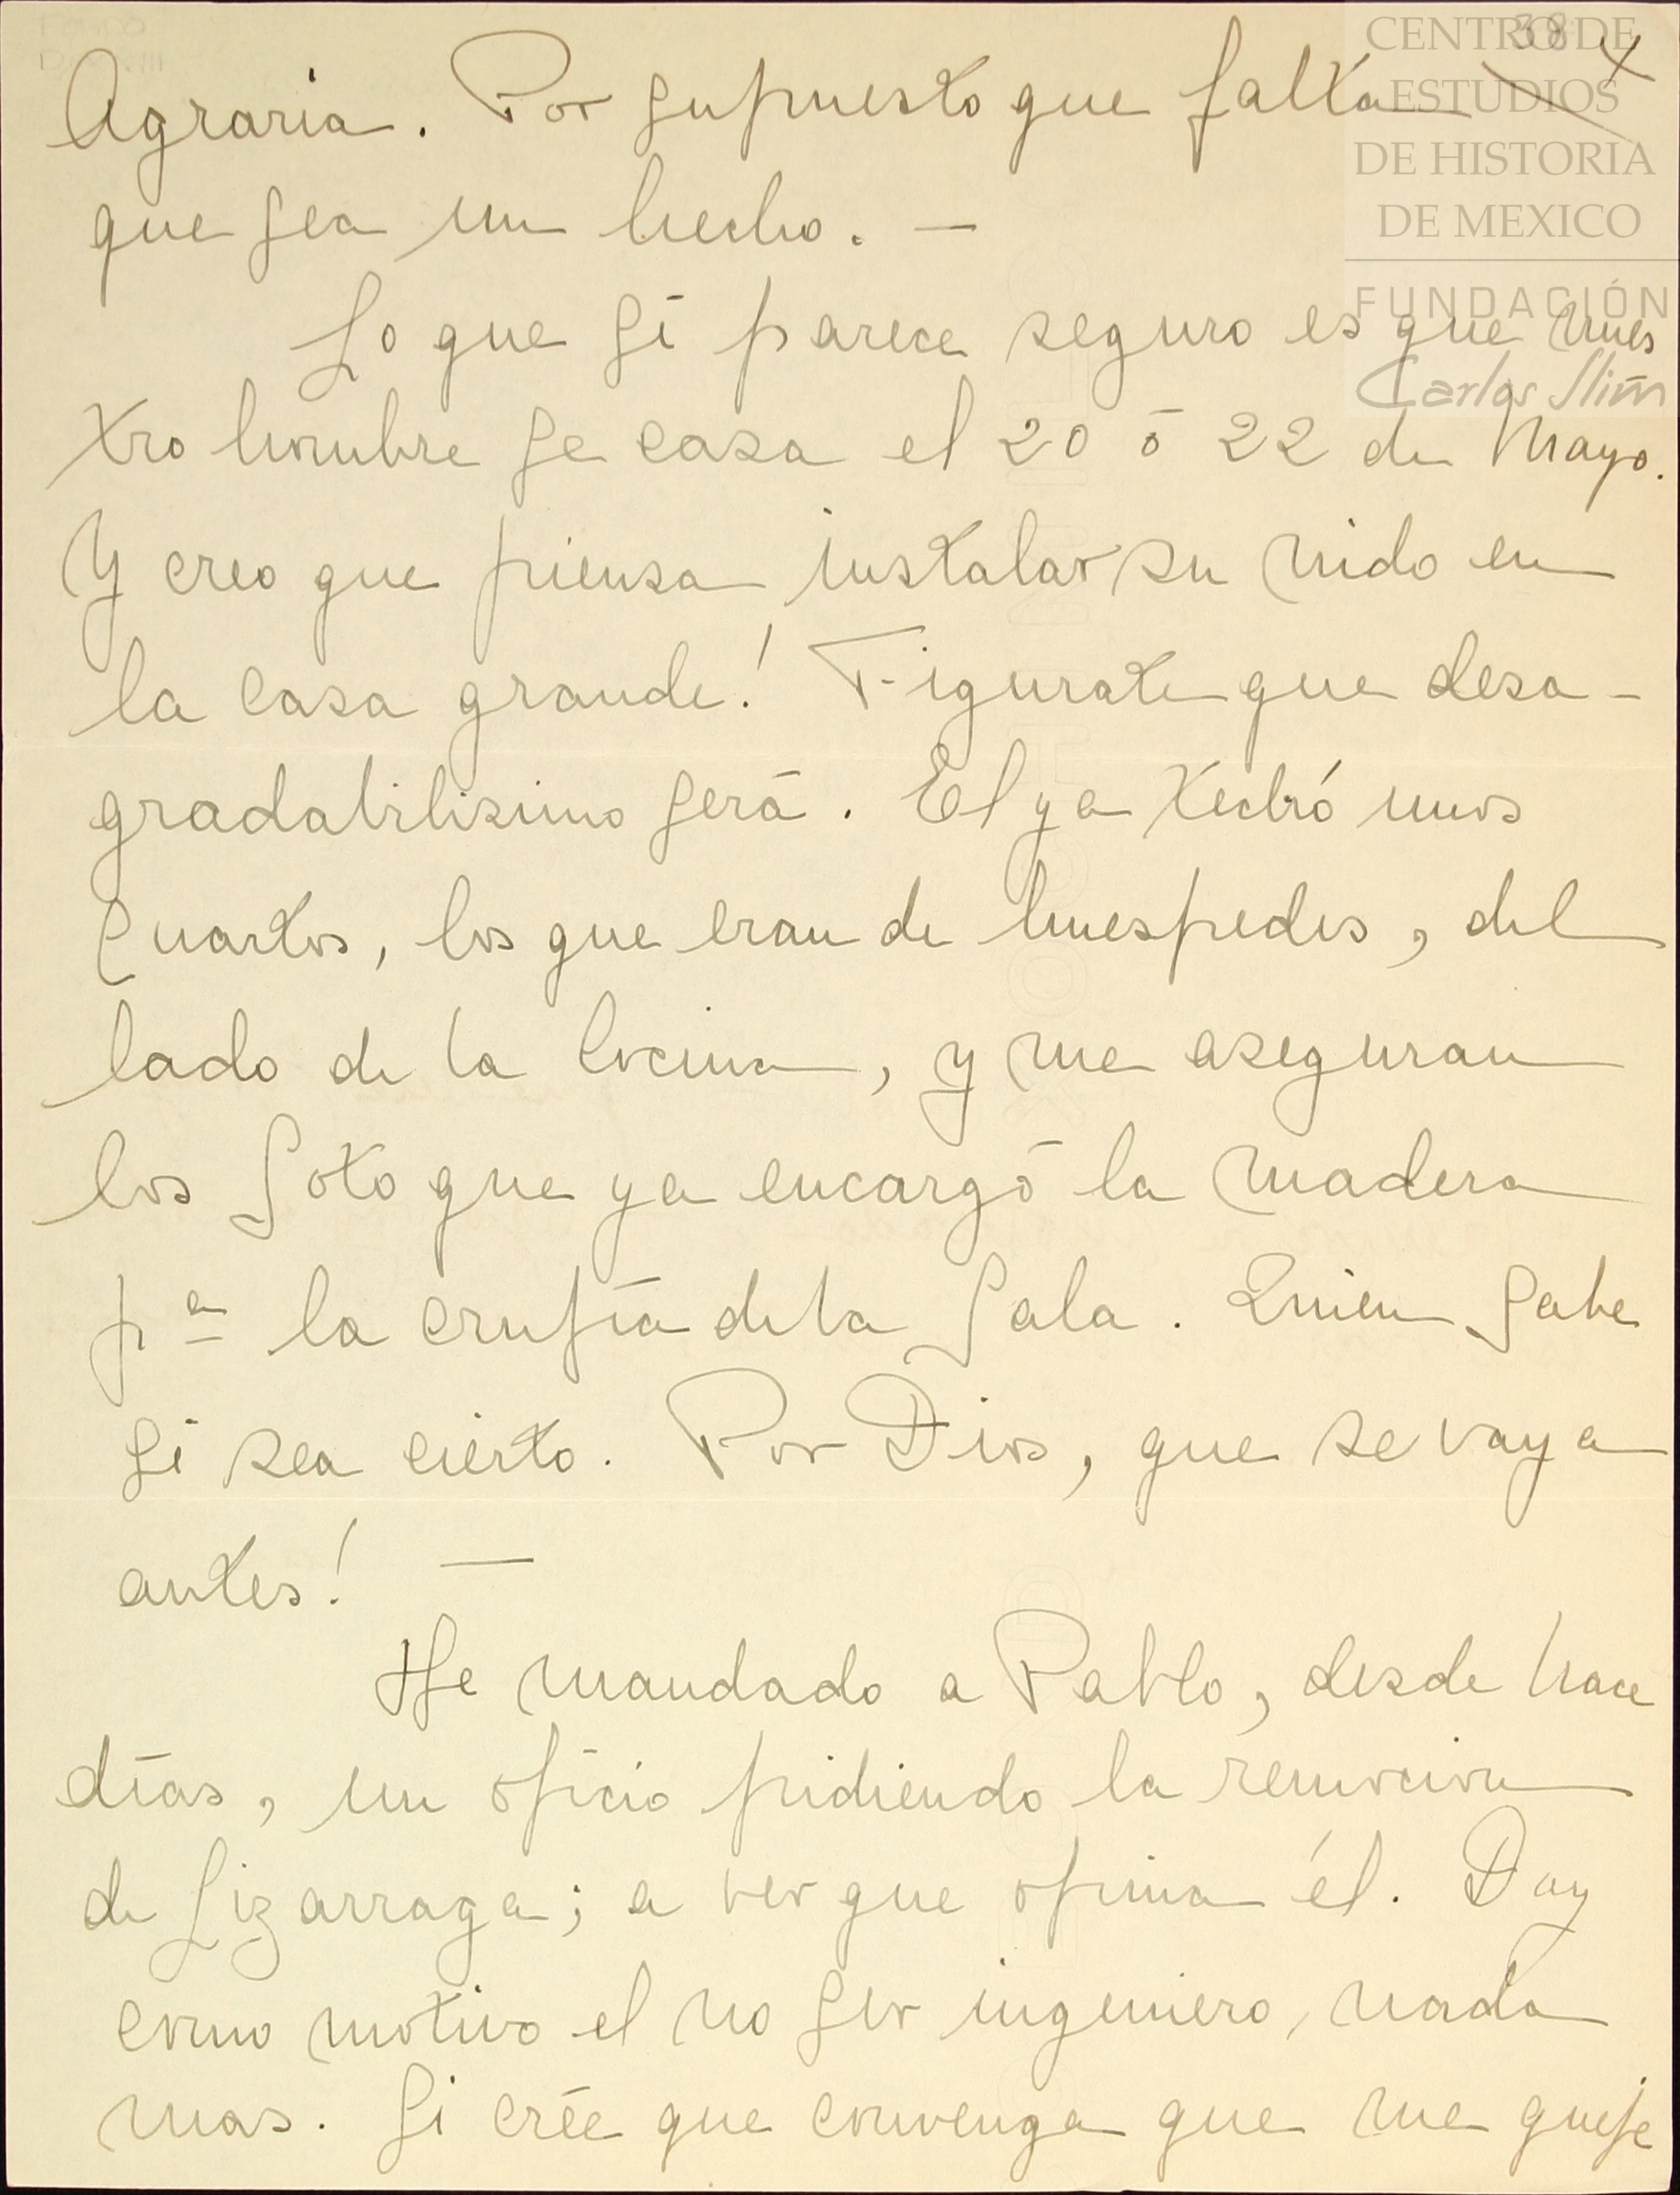 38
CENTRO DE
ESTUDIOS
DE HISTORIA
DE MEXICO
FUNDACIÓN
Carlos Slim
Agraria. Por supuesto que falta
que sea un hecho. —
Lo que sí parece seguro es que nues
tro hombre se casa el 20 ó 22 de Mayo.
Y creo que piensa instalar su nido en
la casa grande! Figurate que desa-
gradabilisimo será. El ya techó unos
cuartos, los que eran de huespedes, del
lado de la cocina, y me aseguran
los Soto que ya encargó la madera
pª la crujía de la Sala. Quien sabe
si sea cierto. Por Dios, que se vaya
antes! —
He mandado a Pablo, desde hace
días, un oficio pidiendo la remocion
de Lizarraga; a ver que opina él. Doy
como motivo el no ser ingeniero, nada
mas. Si crée que convenga que me queje